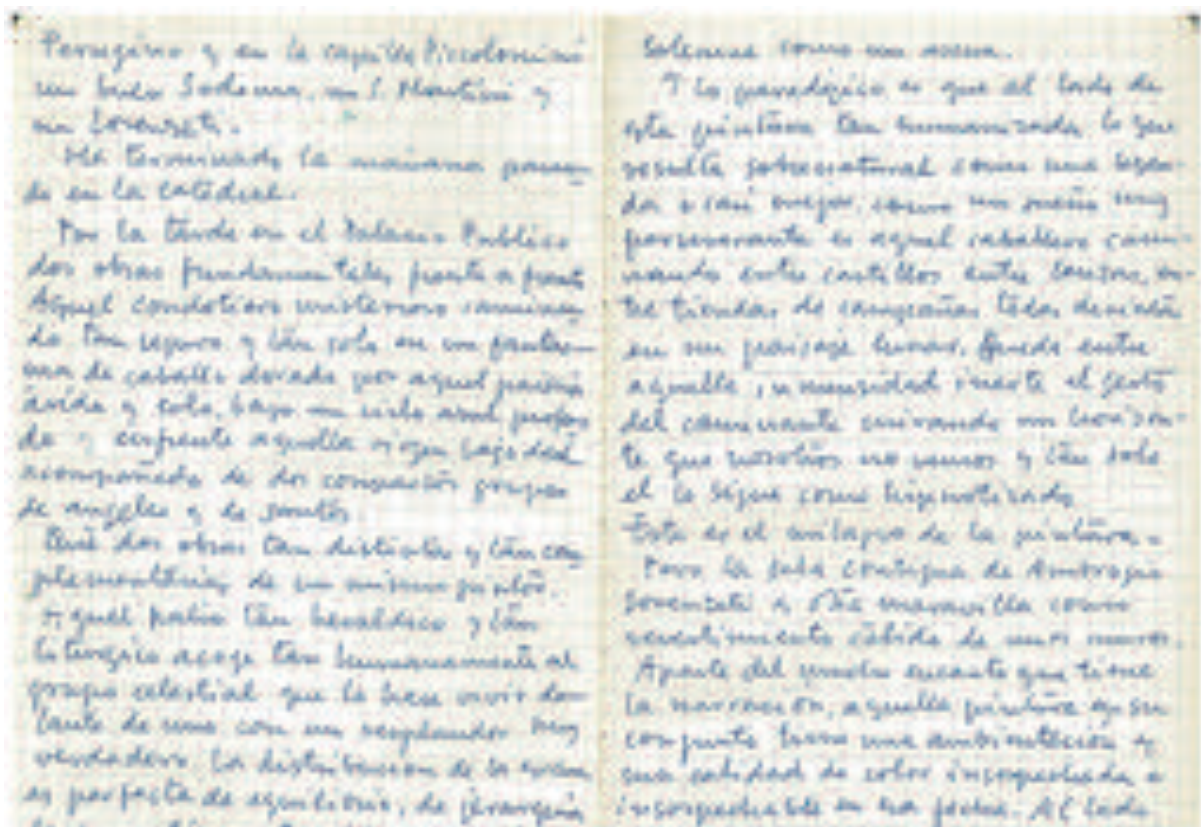 Perugino y en la capilla Piccolomini
un buen Sodoma, un S. Martini y
un Lorenzeti.
He terminado la mañana
en la catedral.
Por la tarde en el Palacio Publico
dos obras fundamentales, frente a frente
Aquel condotiero misterioso caminan
do tan seguro y tán solo en un fantas
ma de caballo dorado por aquel
árido y solo, bajo un cielo azul profun
do y enfrente aquella
acompañada de dos compactos grupos
de angeles y de santos.
Qué dos obras tan distintas y tán com
plementárias de un mismo pintor.
Aquel palio tán heraldico y tán
liturgico acoge tan humanamente al
grupo celestial que lo hace vivir de
lante de uno con un resplandor muy
verdadero. La distribucion de la escena
es perfecta de equilibrio, de jerarquia
solemne como un
Y lo paradógico es que al lado de
esta pintura tan humanizada lo que
resulta sobrenatural como una leyen-
da o casi mejor, como un sueño muy
perseverante es aquel caballero cami-
nando entre castillos entre lanzas, en-
tre tiendas de campañas todo
en un paisaje lunar. Queda entre
aquella inmensidad inerte el gesto
del caminante mirando un horizon-
te que nosotros no vemos y tán solo
el lo sigue como hipnotizado
Este es el milagro de la pintura.
Pero la sala contigua de Ambrogio
Lorenzeti es otra maravilla como
revestimiento cálido de unos muros.
Aparte del mucho encanto que tiene
la narración, aquella pintura en su
conjunto tiene una ambientación y
una calidad de color insospechada e
insospechable en esa fecha. Al lado